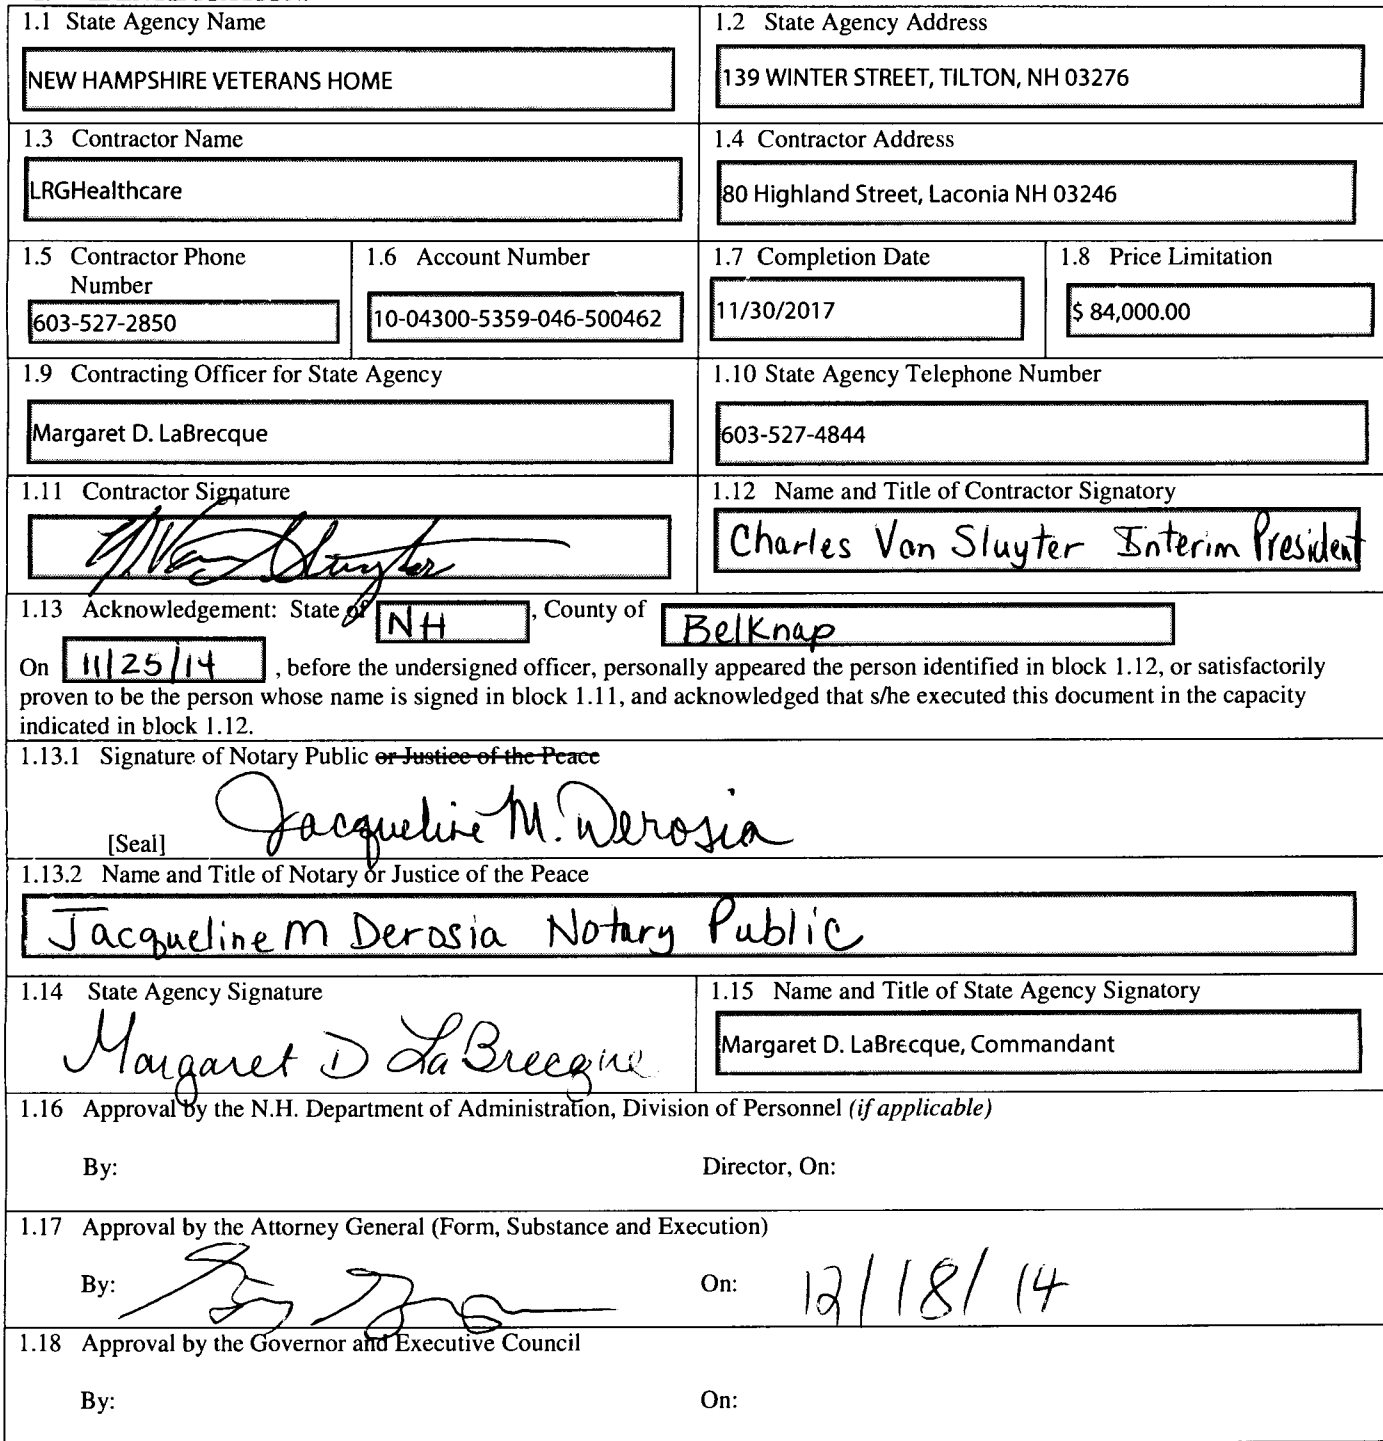 1.1 State Agency Name
NEW HAMPSHIRE VETERANS HOME
1.2 State Agency Address
139 WINTER STREET, TILTON, NH 03276
1.3 Contractor Name
LRGHealthcare
1.4 Contractor Address
80 Highland Street, Laconia NH 03246
1.5 Contractor Phone
Number
603-527-2850
1.6 Account Number
10-04300-5359-046-500462
1.7 Completion Date
11/30/2017
1.8 Price Limitation
$ 84,000.00
1.9 Contracting Officer for State Agency
Margaret D. LaBrecque
1.10 State Agency Telephone Number
603-527-4844
1.11 Contractor Signature
Van Sluyter
1.12 Name and Title of Contractor Signatory
Charles Van Sluyter Interim President
1.13 Acknowledgement: State of NH, County of Belknap
On 11/25/14, before the undersigned officer, personally appeared the person identified in block 1.12, or satisfactorily
proven to be the person whose name is signed in block 1.11, and acknowledged that s/he executed this document in the capacity
indicated in block 1.12.
1.13.1 Signature of Notary Public or Justice of the Peace
Jacqueline M. Derosia
[Seal]
1.13.2 Name and Title of Notary or Justice of the Peace
Jacqueline M Derosia Notary Public
1.14 State Agency Signature
Margaret D LaBrecque
1.15 Name and Title of State Agency Signatory
Margaret D. LaBrecque, Commandant
1.16 Approval by the N.H. Department of Administration, Division of Personnel (if applicable)
By: Director, On:
1.17 Approval by the Attorney General (Form, Substance and Execution)
By: On: 12/18/14
1.18 Approval by the Governor and Executive Council
By: On: